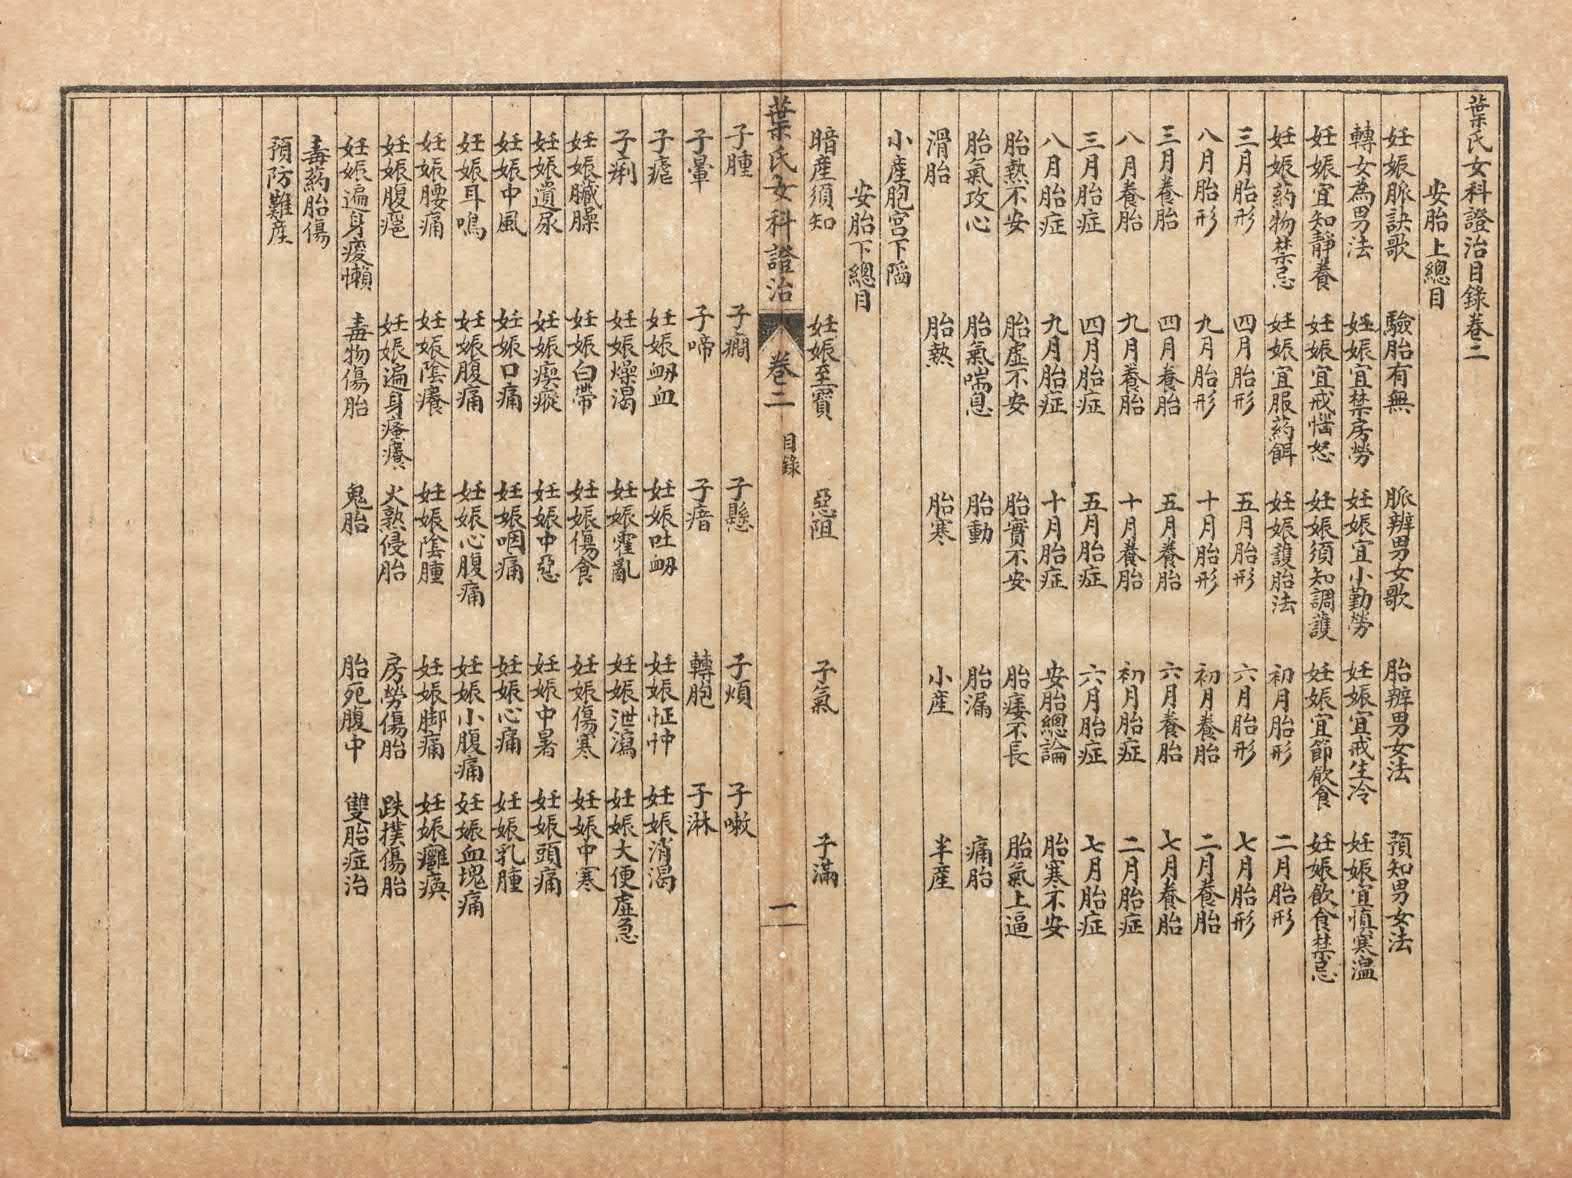 葉氏女科證治目錄卷二
安胎上總目
妊娠脈訣歌 驗胎有無 脈辨男女歌 胎辨男女法 預知男女法
轉女為男法 妊娠宜禁房勞 妊娠宜小勤勞 妊娠宜戒生冷 妊娠宜慎寒溫
妊娠宜知靜養 妊娠宜戒惱怒 妊娠須知調護 妊娠宜節飲食 妊娠飲食禁忌
妊娠葯物禁忌 妊娠宜服葯餌 妊娠護胎法 初月胎形 二月胎形
三月胎形 四月胎形 五月胎形 六月胎形 七月胎形
八月胎形 九月胎形 十月胎形 初月養胎 二月養胎
三月養胎 四月養胎 五月養胎 六月養胎 七月養胎
八月養胎 九月養胎 十月養胎 初月胎症 二月胎症
三月胎症 四月胎症 五月胎症 六月胎症 七月胎症
八月胎症 九月胎症 十月胎症 安胎總論 胎寒不安
胎熱不安 胎虛不安 胎實不安 胎痿不長 胎氣上逼
胎氣攻心 胎氣喘息 胎動 胎漏 痛胎
滑胎 胎熱 胎寒 小產 半產
小產胞宮下陷
安胎下總目
暗產須知 妊娠至寶 惡阻 子氣 子滿
葉氏女科證治 卷二 目錄 一
子腫 子癇 子懸 子煩 子嗽
子暈 子啼 子瘖 轉胞 子淋
子瘧 妊娠衂血 妊娠吐衂 妊娠怔忡 妊娠消渴
子痢 妊娠燥渴 妊娠霍亂 妊娠泄瀉 妊娠大便虛急
妊娠臟躁 妊娠白帶 妊娠傷食 妊娠傷寒 妊娠中寒
妊娠遺尿 妊娠瘈瘲 妊娠中惡 妊娠中暑 妊娠頭痛
妊娠中風 妊娠口痛 妊娠咽痛 妊娠心痛 妊娠乳腫
妊娠耳鳴 妊娠腹痛 妊娠心腹痛 妊娠小腹痛 妊娠血塊痛
妊娠腰痛 妊娠陰癢 妊娠陰腫 妊娠脚痛 妊娠癱瘓
妊娠腹瘧 妊娠遍身瘙癢 火熱侵胎 房勞傷胎 跌撲傷胎
妊娠遍身痠懶 毒物傷胎 鬼胎 胎死腹中 雙胎症治
毒葯胎傷
預防難產